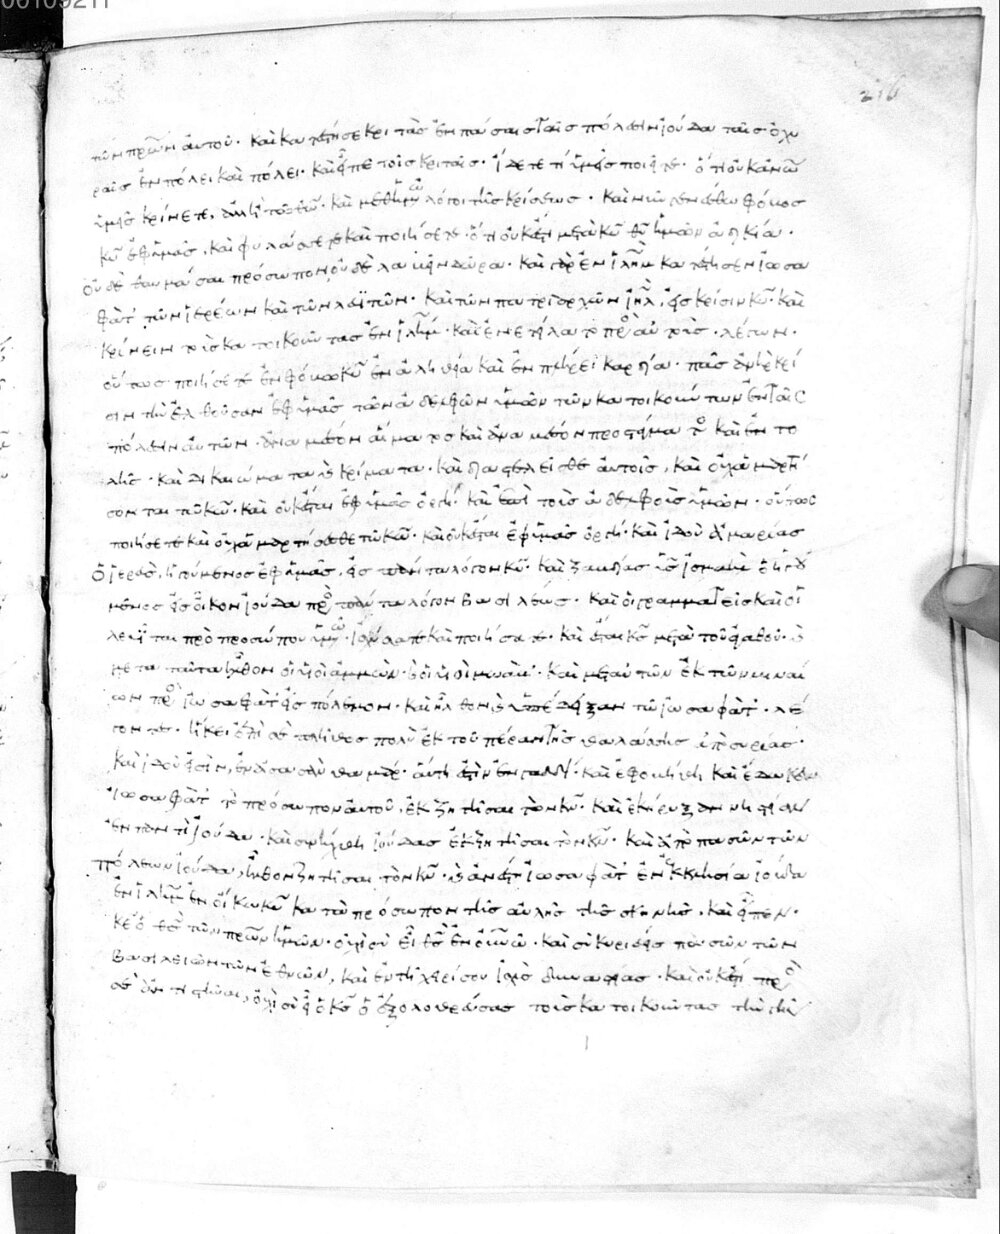 00109211
216
τῶν πρων αὐτοῦ· καὶ κατέστησε κριτὰς ἐν πάσαις ταῖς πόλεσιν ἰούδα ταῖς ὀχυ
ραῖς ἐν πόλει καὶ πόλει· καὶ εἶπε τοῖς κριταῖς· ἴδετε τί ὑμεῖς ποιεῖτε· ὅτι οὐκ ἀνω
ὑμεῖς κρίνετε, ἀλλ' ἢ τῶ κω· καὶ μεθ' ὑμῶν λόγοι τῆς κρίσεως· καὶ νῦν γενέσθω φόβος
κυ ἐφ' ὑμᾶς, καὶ φυλάσσετε καὶ ποιήσετε· ὅτι οὐκ ἔστι μετὰ κυ θυ ἡμῶν ἀδικία·
οὐδὲ θαυμάσαι πρόσωπον οὐδὲ λαβεῖν δῶρα· καὶ γὰρ ἐν ιλημ κατέστησεν ἰωσα
φὰτ τῶν ἱερέων καὶ τῶν λευϊτῶν· καὶ τῶν πατριαρχῶν ιηλ, εἰς κρίσιν κυ· καὶ
κρίνειν τοὺς κατοικοῦντας ἐν ιλημ· καὶ ἐνετείλατο πρὸς αὐτοὺς· λέγων·
οὕτως ποιήσετε ἐν φόβω κυ ἐν ἀληθεία καὶ ἐν πλήρει καρδία· πᾶς ἀνὴρ κρί
σιν τὴν ἐλθοῦσαν ἐφ' ὑμᾶς τῶν ἀδελφῶν ὑμῶν τῶν κατοικούντων ἐν ταῖς
πόλεσιν αὐτῶν· ἀνὰ μέσον αἵματος καὶ ἀνὰ μέσον προστάγματος καὶ ἐντο
λῆς· καὶ δικαιώματα καὶ κρίματα· καὶ διαστελεῖσθε αὐτοῖς, καὶ οὐχ ἁμαρτή
σονται τῶ κω· καὶ οὐκ ἔσται ἐφ' ὑμᾶς ὀργὴ καὶ ἐπὶ τοὺς ἀδελφοὺς ὑμῶν· οὕτως
ποιήσετε καὶ οὐχ ἁμαρτήσεσθε τῶ κω· καὶ οὐκ ἔσται ἐφ' ὑμᾶς ὀργή· καὶ ἰδοὺ ἀμαρίας
ὁ ἱερεὺς, ἡγούμενος ἐφ' ὑμᾶς, εἰς πάντα λόγον κυ· καὶ ζαβδίας υἱὸς ἰσμαὴλ ὁ ἡγού
μενος εἰς οἶκον ἰούδα πρὸς πάντα λόγον βασιλέως· καὶ οἱ γραμματεῖς καὶ οἱ
λευῖται πρὸ προσώπου ὑμῶν· ἰσχύσατε καὶ ποιήσατε· καὶ ἔσται κς μετὰ τοῦ ἀγαθοῦ· καὶ
μετὰ ταῦτα ἦλθον οἱ υἱοὶ ἀμμών· καὶ οἱ υἱοὶ μωάβ· καὶ μετ' αὐτῶν ἐκ τῶν μιναί
ων πρὸς ἰωσαφὰτ εἰς πόλεμον· καὶ ἦλθον καὶ ὑπέδειξαν τῶ ἰωσαφὰτ· λέ
γοντες· ἥκει ἐπὶ σὲ πλῆθος πολὺ ἐκ τοῦ πέραν τῆς θαλάσσης ἀπὸ συρίας·
καὶ ἰδού εἰσιν, ἐν ἀσασὰν θαμάρ· αὕτη ἐστὶν ἐνγαδδί· καὶ ἐφοβήθη καὶ ἔδωκεν
ἰωσαφὰτ τὸ πρόσωπον αὐτοῦ, ἐκζητῆσαι τὸν κν· καὶ ἐκήρυξαν νηστείαν
ἐν παντὶ ἰούδα· καὶ συνήχθη ἰούδας ἐκζητῆσαι τὸν κν· καὶ ἀπὸ πασῶν τῶν
πόλεων ἰούδα, ἦλθον ζητῆσαι τὸν κν· καὶ ἀνέστη ἰωσαφὰτ ἐν ἐκκλησία ἰούδα
ἐν ιλημ ἐν οἴκω κυ κατὰ πρόσωπον τῆς αὐλῆς τῆς σκηνῆς, καὶ εἶπεν·
κε ὁ θς τῶν πρων ἡμῶν· οὐχὶ σὺ εἶ θς ἐν ουνω· καὶ σὺ κυριεύεις πασῶν τῶν
βασιλειῶν τῶν ἐθνῶν, καὶ ἐν τῆ χειρί σου ἰσχὺς δυναστείας· καὶ οὐκ ἔστι πρὸς
σὲ ἀντιστῆναι, οὐχὶ σὺ εἶ ὁ κς ὁ ἐξολοθρεύσας τοὺς κατοικοῦντας τὴν γῆν